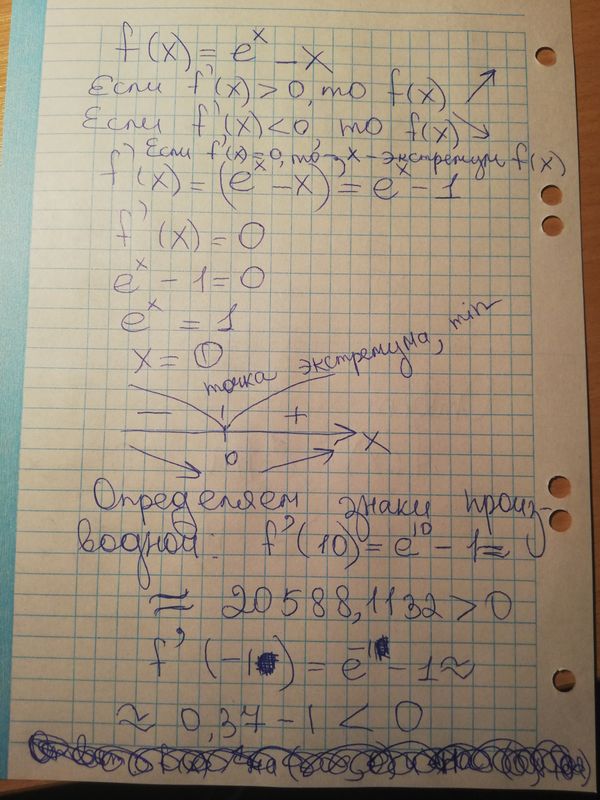 f(x) = e^x - x
Если f'(x) > 0, то f(x) ↗
Если f'(x) < 0, то f(x) ↘
Если f'(x) = 0, то x - экстремум f(x)
f'(x) = (e^x - x)' = e^x - 1
f'(x) = 0
e^x - 1 = 0
e^x = 1
x = 0
точка экстремума, min
− +
0 x
Определяем знаки произ-
водной: f'(10) = e^10 - 1 ≈
≈ 20588,1132 > 0
f'(-1) = e^-1 - 1 ≈
≈ 0,37 - 1 < 0